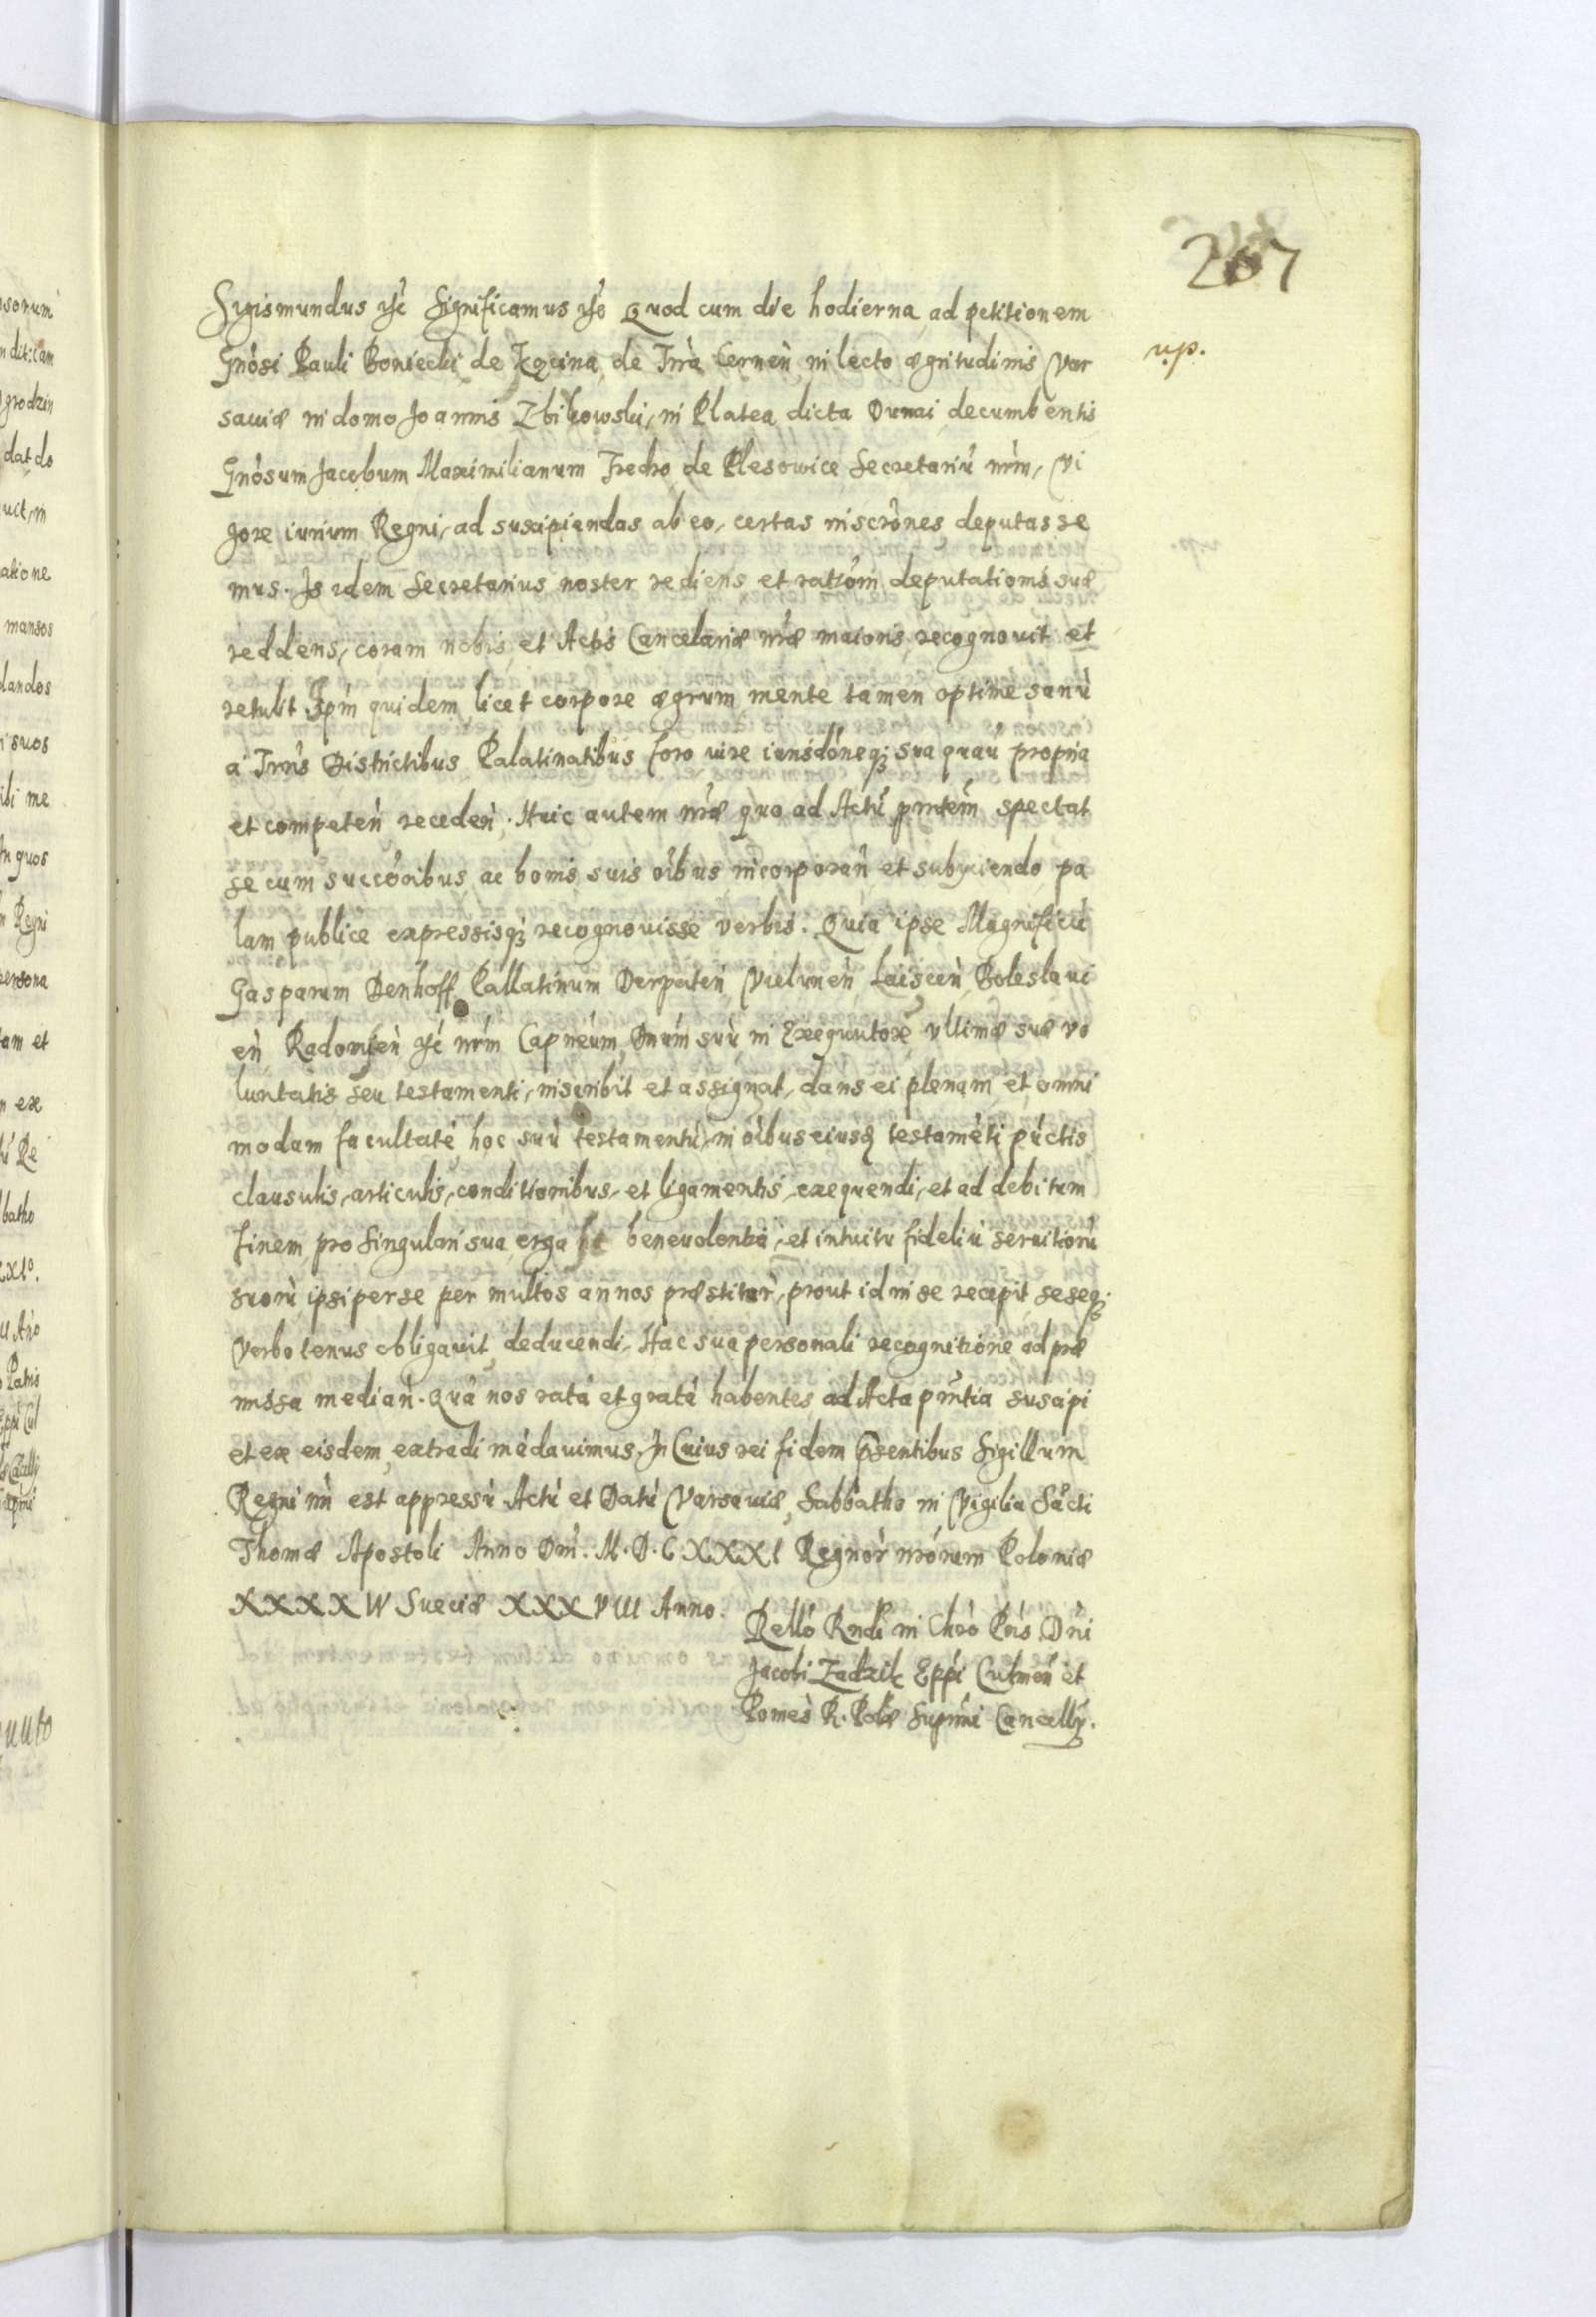 267
Sigismundus etc̃ Significamus etc̃ Quod cum die hodierna, ad petitionem
u.p.
Gnôsi Pauli Boniecki de de Trrà Cernen̄ in lecto ægritudinis Var
sauiæ in domo Joannis Zbikowski, in Platea dicta Dunai decumbentis
Gnôsum Jacobum Maximilianum Fredro de Plesowice Secretariũ nrm̃, Vi
gore iurium Regni, ad suscipiendas ab eo, certas inscrõnes deputasse
mus. Is idem Secretarius noster rediens et ratiõm deputationis suæ
reddens, coram nobis, et Actis Cancelariæ nrã maioris, recognouit et
retulit Ipm̃ quidem licet corpore ægrum, mente tamen optime sanũ
à Trris Districtibus Palatinatibus foro iure iurisdõneq; sua quauĩ propria
et competeñ recedeñ. Huic autem nrã quo ad Actũ prñtem spectat
se cum succõribus ac bonis suis oĩbus incorporañ et subijciendo pa
lam publice expressisq; recognouisse verbis. Quia ipse Magnificũ
Gasparum Denhoff Pallatinum Derpateñ Vieluneñ Boleslaui
eñ Radomseñ etc̃ nrm̃ Capneũm, Dnũm suũ in Exequutorẽ vltimæ suæ vo
luntatis seu testamenti, inscribit et assignat, dans ei plenam et omni
modam facultatẽ hoc suũ testamentũ, in oĩbus eiusd testamẽti pũctis
clausulis, articulis, conditionibus, et ligamentis, exequendi, et ad debitum
finem, pro singulari sua erga se beneuolentia, et intuitu fideliũ seruitiorũ
suorũ ipsi per se per multos annos præstitor̃, prout id in se recepit, seseq;
Verbo tenus obligauit, deducendi. Hac sua personali recognitione ad præ
missa mediañ. Quã nos ratã et gratã habentes, ad Acta prñtia suscipi
et ex eisdem, extradi mãdauimus. In Cuius rei fidem p̃sentibus Sigillum
Regni nri est appressũ Actũ et Datũ Varsauiæ, Sabbatho in Vigilia Sãcti
Thomæ Apostoli Anno Dnĩ. M.D.C.XXX Regnor̃ nrõrum Poloniæ
XXXXIV Sueciæ XXXVIII Anno.
Rellõ Rndĩ in Chrõ Pris Dñi
Jacobi Zadzik Eppĩ Culmeñ et
Pomes̃ R. Polæ Suprmĩ Cancellrij.